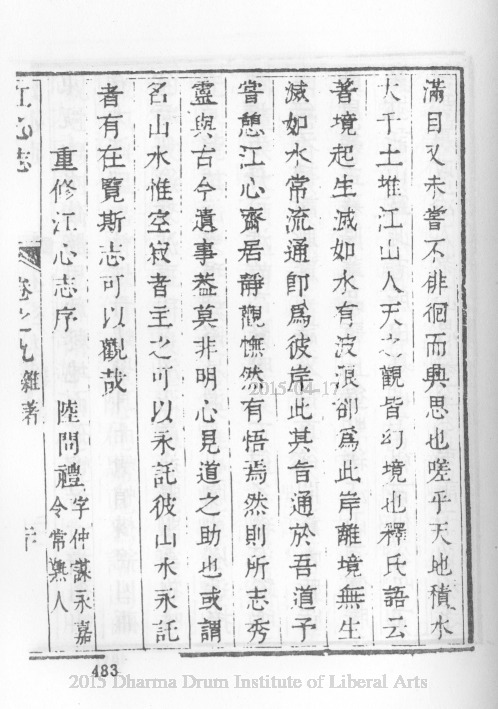 滿目又未嘗不徘徊而興思也嗟乎天地積水
大千土堆江山人天之觀皆幻境也釋氏語云
著境起生滅如水有波浪卻爲此岸離境無生
滅如水常流通卽爲彼岸此其旨通於吾道予
嘗憩江心齋居靜觀憮然有悟焉然則所志秀
靈與古今遺事葢莫非明心見道之助也或謂
名山水惟空寂者主之可以永託彼山水永託
者有在覽斯志可以觀哉
重修江心志序 陸問禮字仲謀永嘉令常熟人
江心志 卷之九雜著
2015-04-17
483
2015 Dharma Drum Institute of Liberal Arts